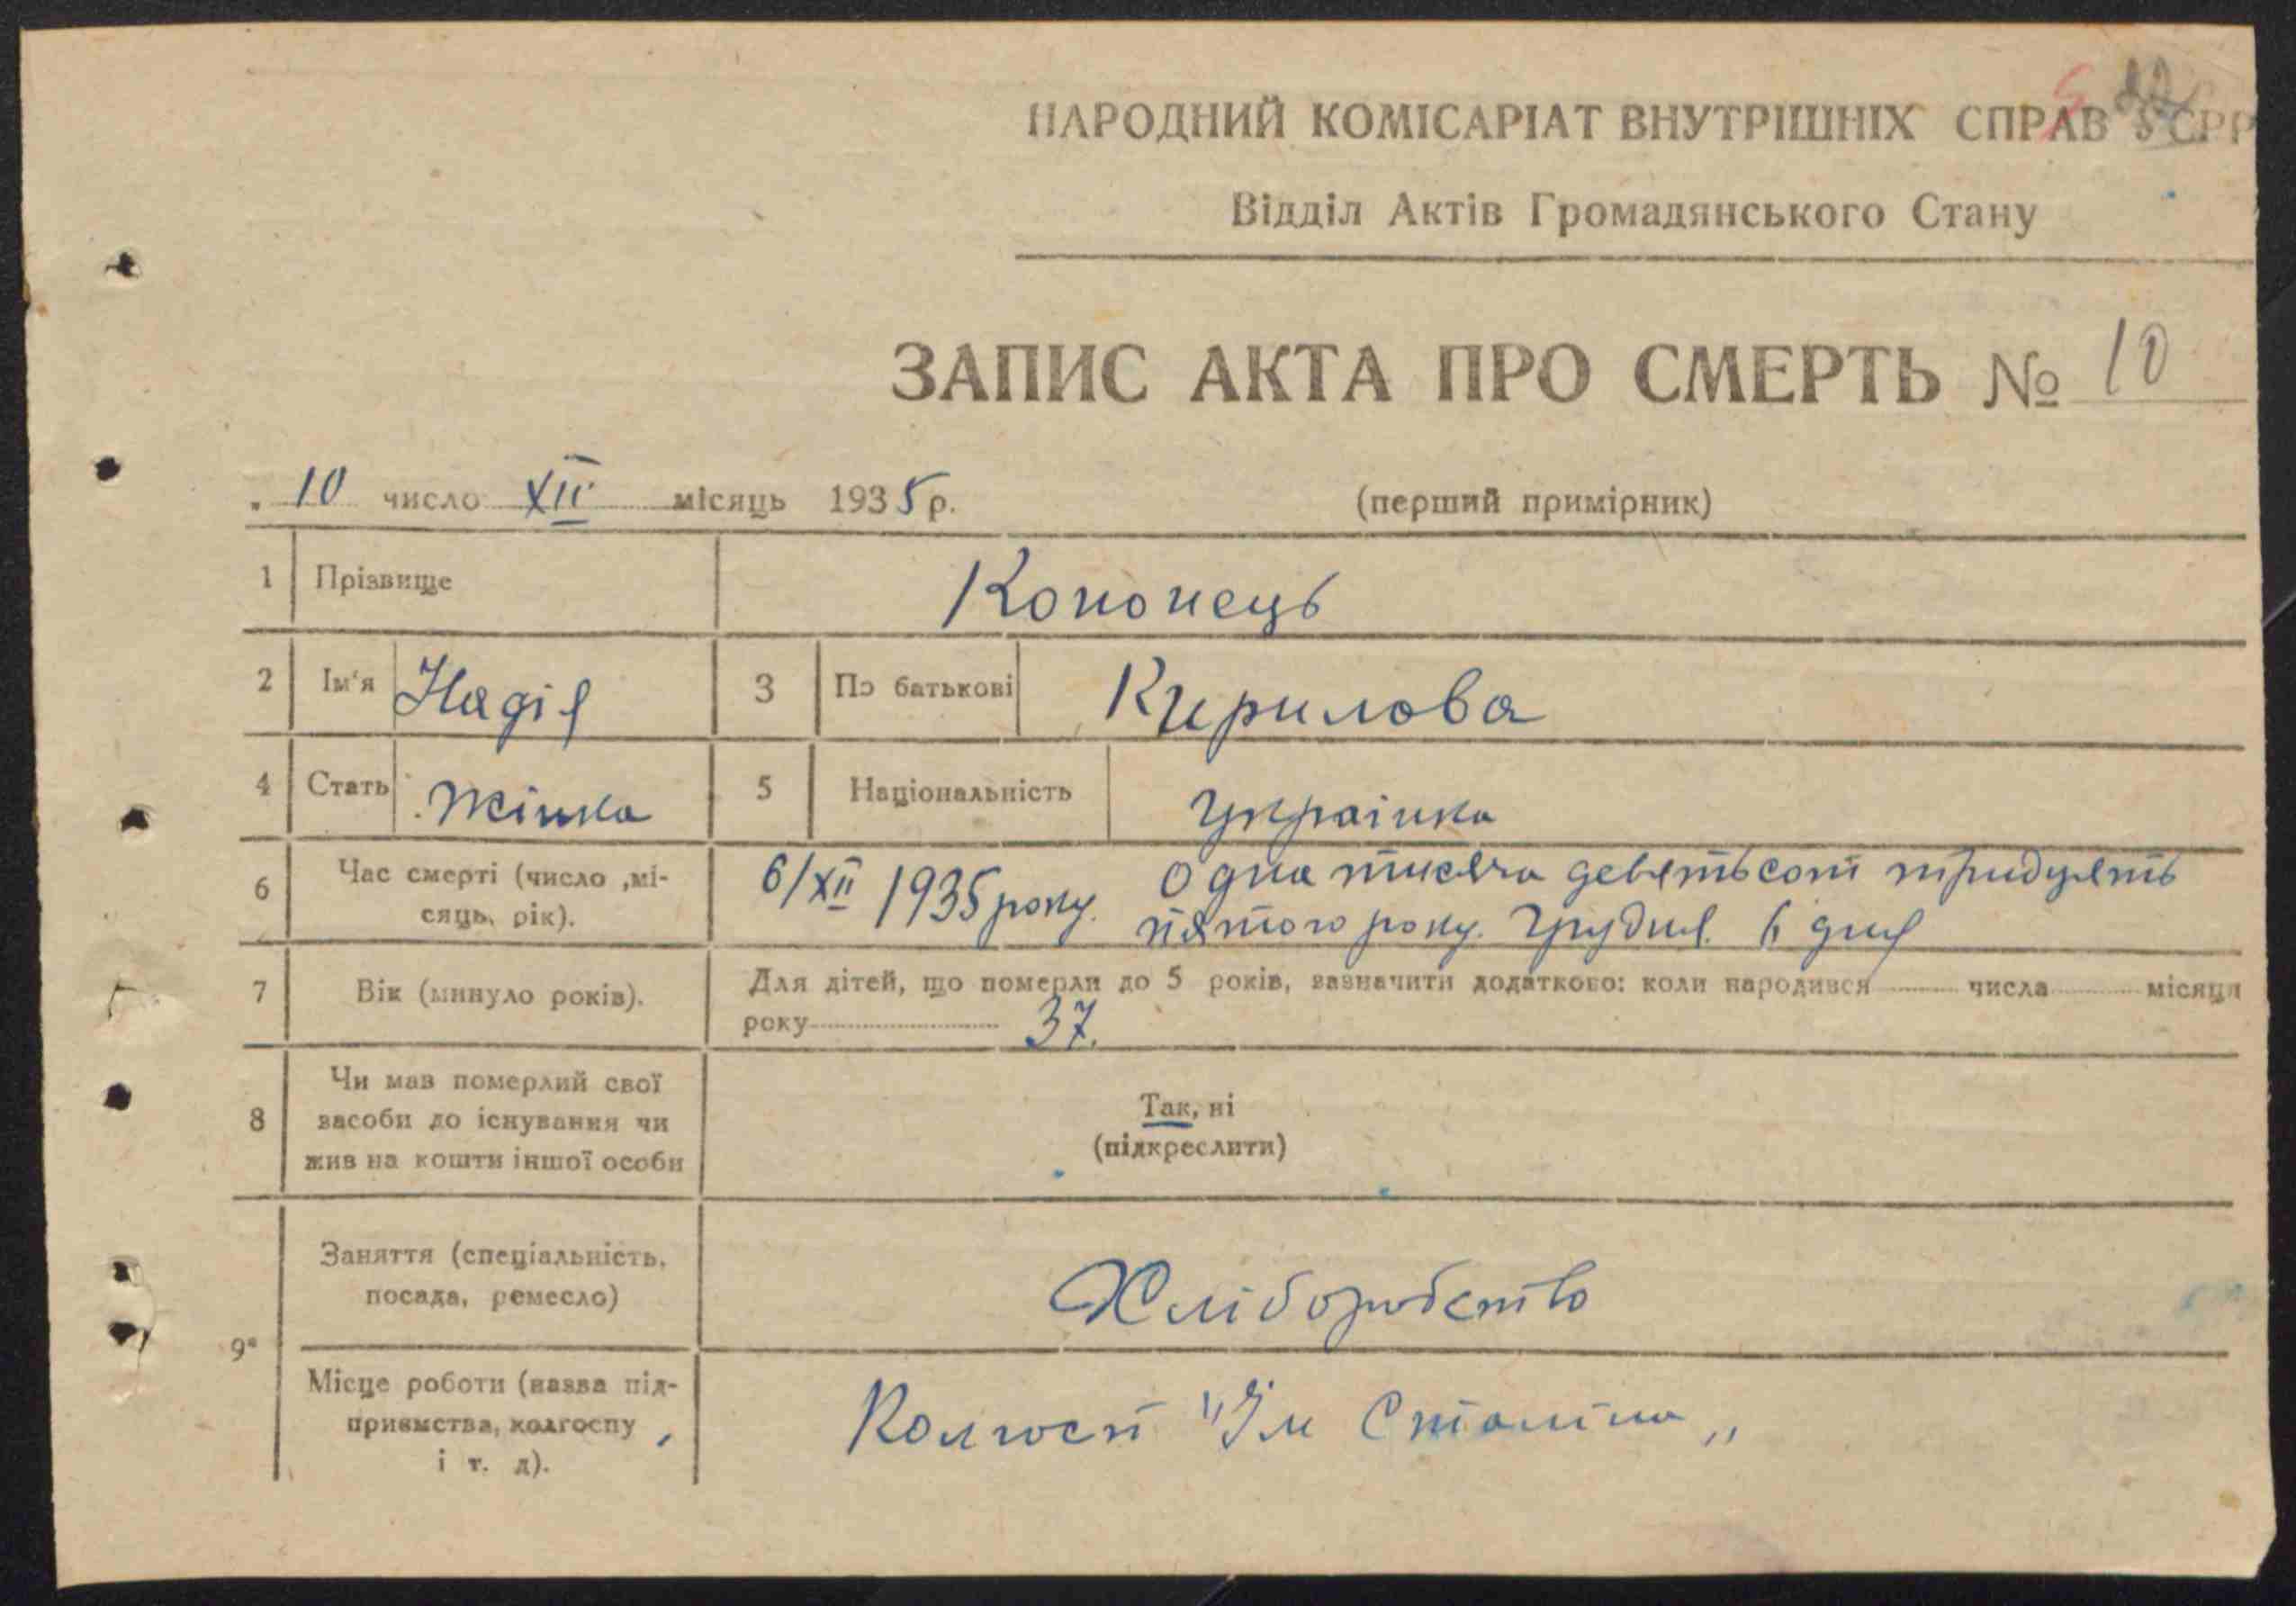 НАРОДНИЙ КОМІСАРІАТ ВНУТРІШНІХ СПРАВ УСРР
Відділ Актів Громадянського Стану
ЗАПИС АКТА ПРО СМЕРТЬ № 10
„ 10 число XII місяць 1935 р. (перший примірник)
1 Прізвище Кононець
2 Ім'я Надія 3 По батькові Кирилова
4 Стать Жінка 5 Національність Українка
6 Час смерті (число ,мі-
сяць, рік).
6/XII 1935 року. Одна тисяча девятьсот тридцять
пятого року. Грудня. 6 дня
7 Вік (минуло років).
Для дітей, що померли до 5 років, зазначити додатково: коли народився числа місяця
року 37.
8 Чи мав померлий свої
засоби до існування чи
жив на кошти іншої особи
Так, ні
(підкреслити)
9а Заняття (спеціальність,
посада, ремесло)
Хліборобство
Місце роботи (назва під-
приємства, колгоспу
і т. д).
Колгосп "Ім Сталіна„